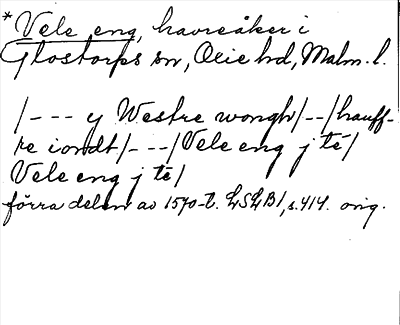 *Vele eng, havreåker i
Glostorps sn, Oxie hd, Malm. l.
/--- y Westre wongh/--/hauff-
re iordt/---/Vele eng j té/
Vele eng j té/
förra delen av 1570-t. LSLB1, s. 414. orig.